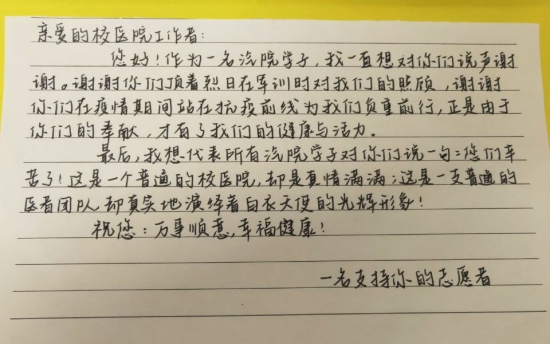 亲爱的校医院工作者:
您好!作为一名汽院学子,我一直想对你们说声谢
谢。谢谢你们顶着烈日在军训时对我们的照顾,谢谢
你们在疫情期间站在抗疫前线为我们负重前行,正是由于
你们的奉献,才有了我们的健康与活力。
最后,我想代表所有汽院学子对你们说一句:您们辛
苦了!这是一个普通的校医院,却是真情满满;这是一支普通的
医者团队,却真实地演绎着白衣天使的光辉形象!
祝您:万事顺意,幸福健康!
一名支持你的志愿者